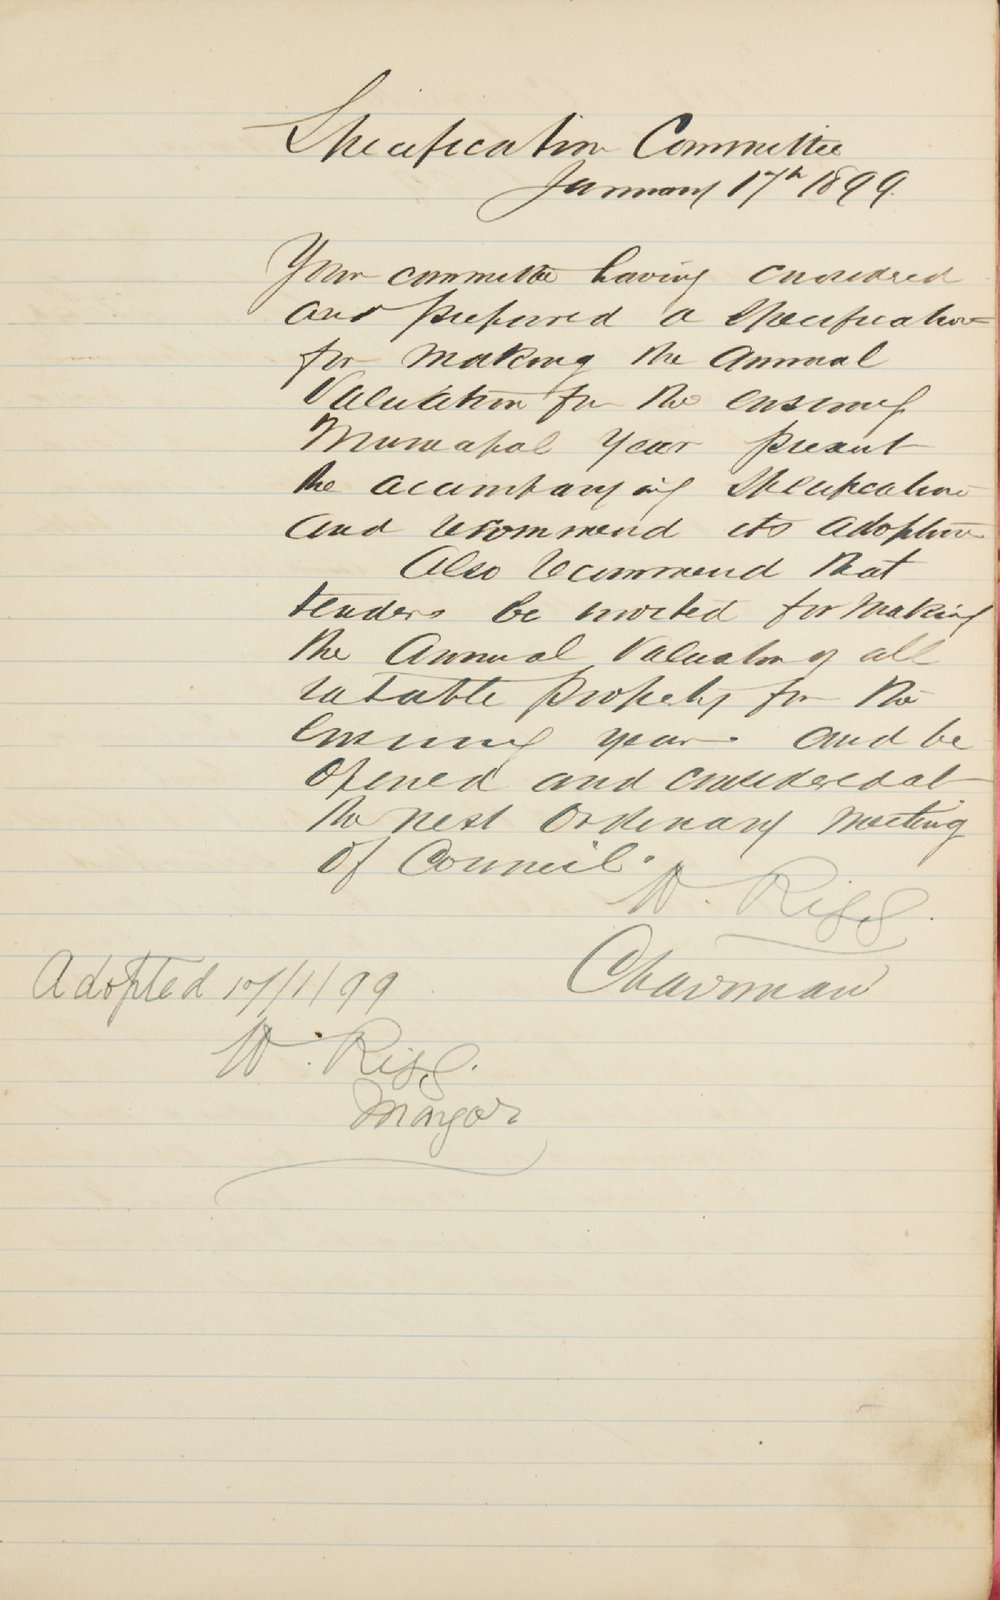 Specification Committee
January 17th 1899.
Your committee having considered
and prepared a Specification
for making the Annual
Valuation for the ensuing
Municipal Year present
the accompanying Specification
and recommend its adoption
Also recommend that
tenders be invited for making
the Annual Valuation of all
ratable property for the
Ensuing year. and be
Opened and considered at
the next Ordinary Meeting
Of Council.
W. Rigg.
Chairman
Adopted 17/1/99
W. Rigg.
Mayor